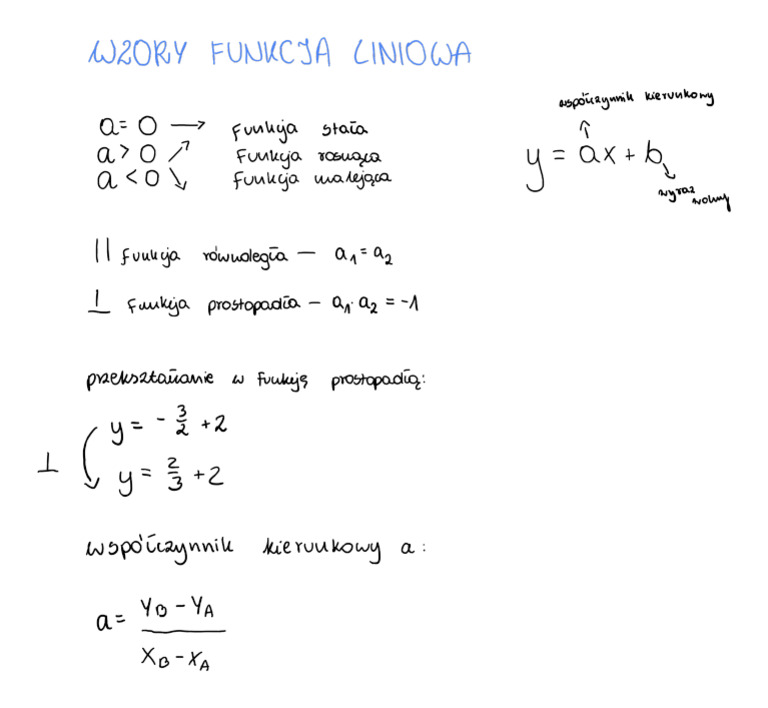 WZORY FUNKCJA LINIOWA
współczynnik kierunkowy
y = ax + b
wyraz wolny
a = 0 → funkcja stała
a > 0 ↗ funkcja rosnąca
a < 0 ↘ funkcja malejąca
|| funkcja równoległa – a₁ = a₂
⊥ funkcja prostopadła – a₁ · a₂ = -1
przekształcanie w funkcję prostopadłą:
y = - 3/2 + 2
⊥
y = 2/3 + 2
współczynnik kierunkowy a:
a = (y_B - y_A) / (x_B - x_A)